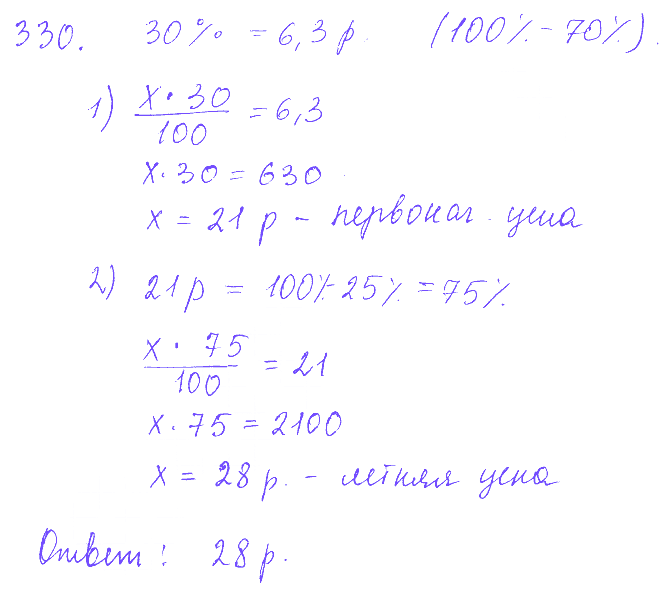 330. 30% = 6,3 р. (100% - 70%).
1) x · 30 / 100 = 6,3
x · 30 = 630
x = 21 р - первонач. цена
2) 21 р = 100% - 25% = 75%
x · 75 / 100 = 21
x · 75 = 2100
x = 28 р. - летняя цена
Ответ: 28 р.